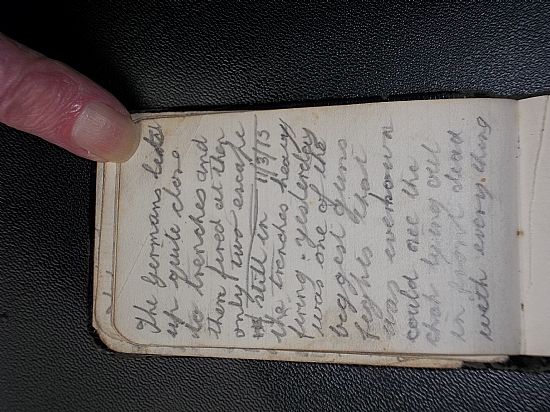 The Germans
up quite close
to trenches and
then fired at them
only two escape
still in 11/3/15
the trenches heavy
firing. yesterday
was one of the
biggest guns
fights that
was ever known
could see the
chaps lying out
in front dead
with every thing